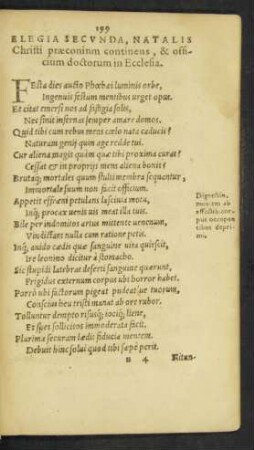 199
ELEGIA SECVNDA, NATALIS
Christi præconium continens, & offi
cium doctorum in Ecclesia.
FEsta dies aucto Phœbæi luminis orbe,
Ingenuis festum mentibus urget opus.
Et citat emersi nos ad fastigia solis,
Nec sinit infernas semper amare domos.
Quid tibi cum rebus mens cælo nata caducis?
Naturam genij quin age redde tui.
Cur aliena magis quàm quæ tibi proxima curat?
Cessat & in proprijs mens aliena bonis?
Brutaq; mortales quum stulti membra sequuntur,
Immortale suum non facit officium.
Appetit effræni petulans lasciuia motu,
Inq; procax uenit uit mens illa
Bile per indomitos artus mittente uenenum,
Vindictam nulla cum ratione petit.
Inq; auido cædis quæ sanguine uita quiescit,
Ire leonino dicitur à stomacho.
Sic stupidi latebras deserti sanguine quærunt,
Frigidus externum corpus ubi horror habet.
Parcò ubi factorum pigeat pudeatq;ue tuorum,
Conscius heu tristi manat ab ore rubor.
Tolluntur dempto risusq; iociq; liene,
Et spes sollicitos immoderata facit.
Plurima securam lædit fiducia mentem.
Debuit hinc solui quod tibi sæpè perit.
Digressio,
mentem ab
affectib. cor-
poris occupan
tibus depri-
mi.
n 4 Titan-